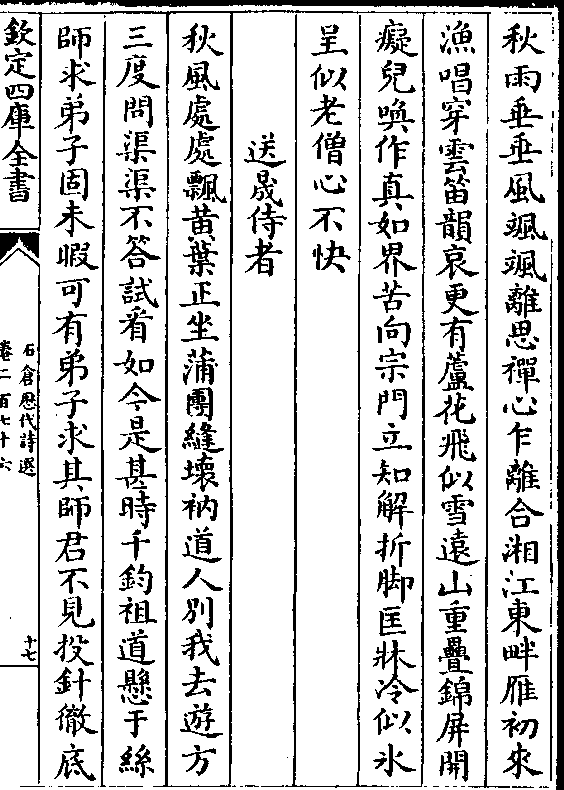 秋雨垂垂風颯颯離思禪心乍離合湘江東畔雁初來
漁唱穿雲笛韻哀更有蘆花飛似雪遠山重疊錦屏開
癡兒喚作真如界苦向宗門立知解折脚匡牀冷似氷
呈似老僧心不快
送晟侍者
秋風處處飄黄葉正坐蒲團縫壊衲道人別我去遊方
三度問渠渠不答試看如今是甚時千鈞祖道懸于絲
師求弟子固未暇可有弟子求其師君不見投針徹底
欽定四庫全書
石倉歷代詩選
卷二百七十六
十七